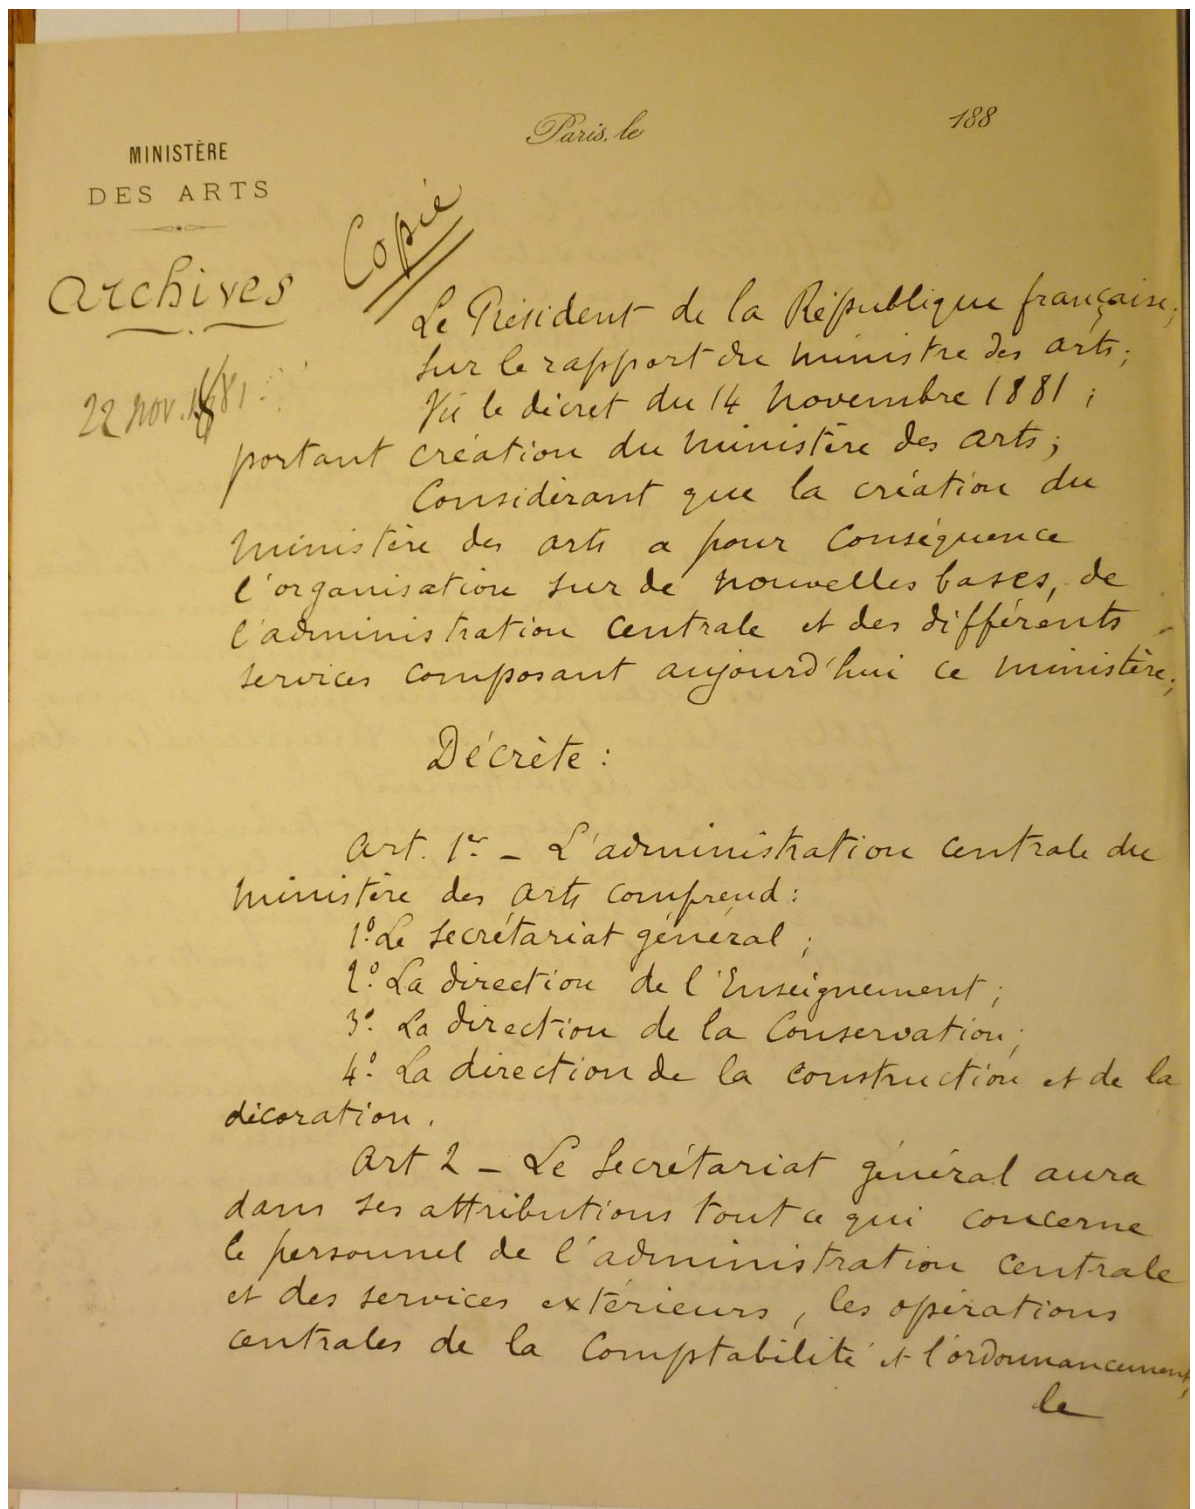 Paris, le 188
MINISTÈRE
DES ARTS
Archives
Copie
22 nov. 1881.
Le Président de la République française,
Sur le rapport du ministre des arts;
Vu le décret du 14 novembre 1881;
portant création du ministère des arts;
Considérant que la création du
ministère des arts a pour conséquence
l'organisation sur de nouvelles bases, de
l'administration centrale et des différents
services composant aujourd'hui ce ministère;
Décrète:
Art. 1er - L'administration centrale du
ministère des arts comprend:
1º. Le secrétariat général;
2º. La direction de l'Enseignement;
3º. La direction de la Conservation;
4º. La direction de la construction et de la
décoration.
Art 2 - Le Secrétariat général aura
dans ses attributions tout ce qui concerne
le personnel de l'administration centrale
et des services extérieurs, les opérations
centrales de la Comptabilité et l'ordonnancement,
le